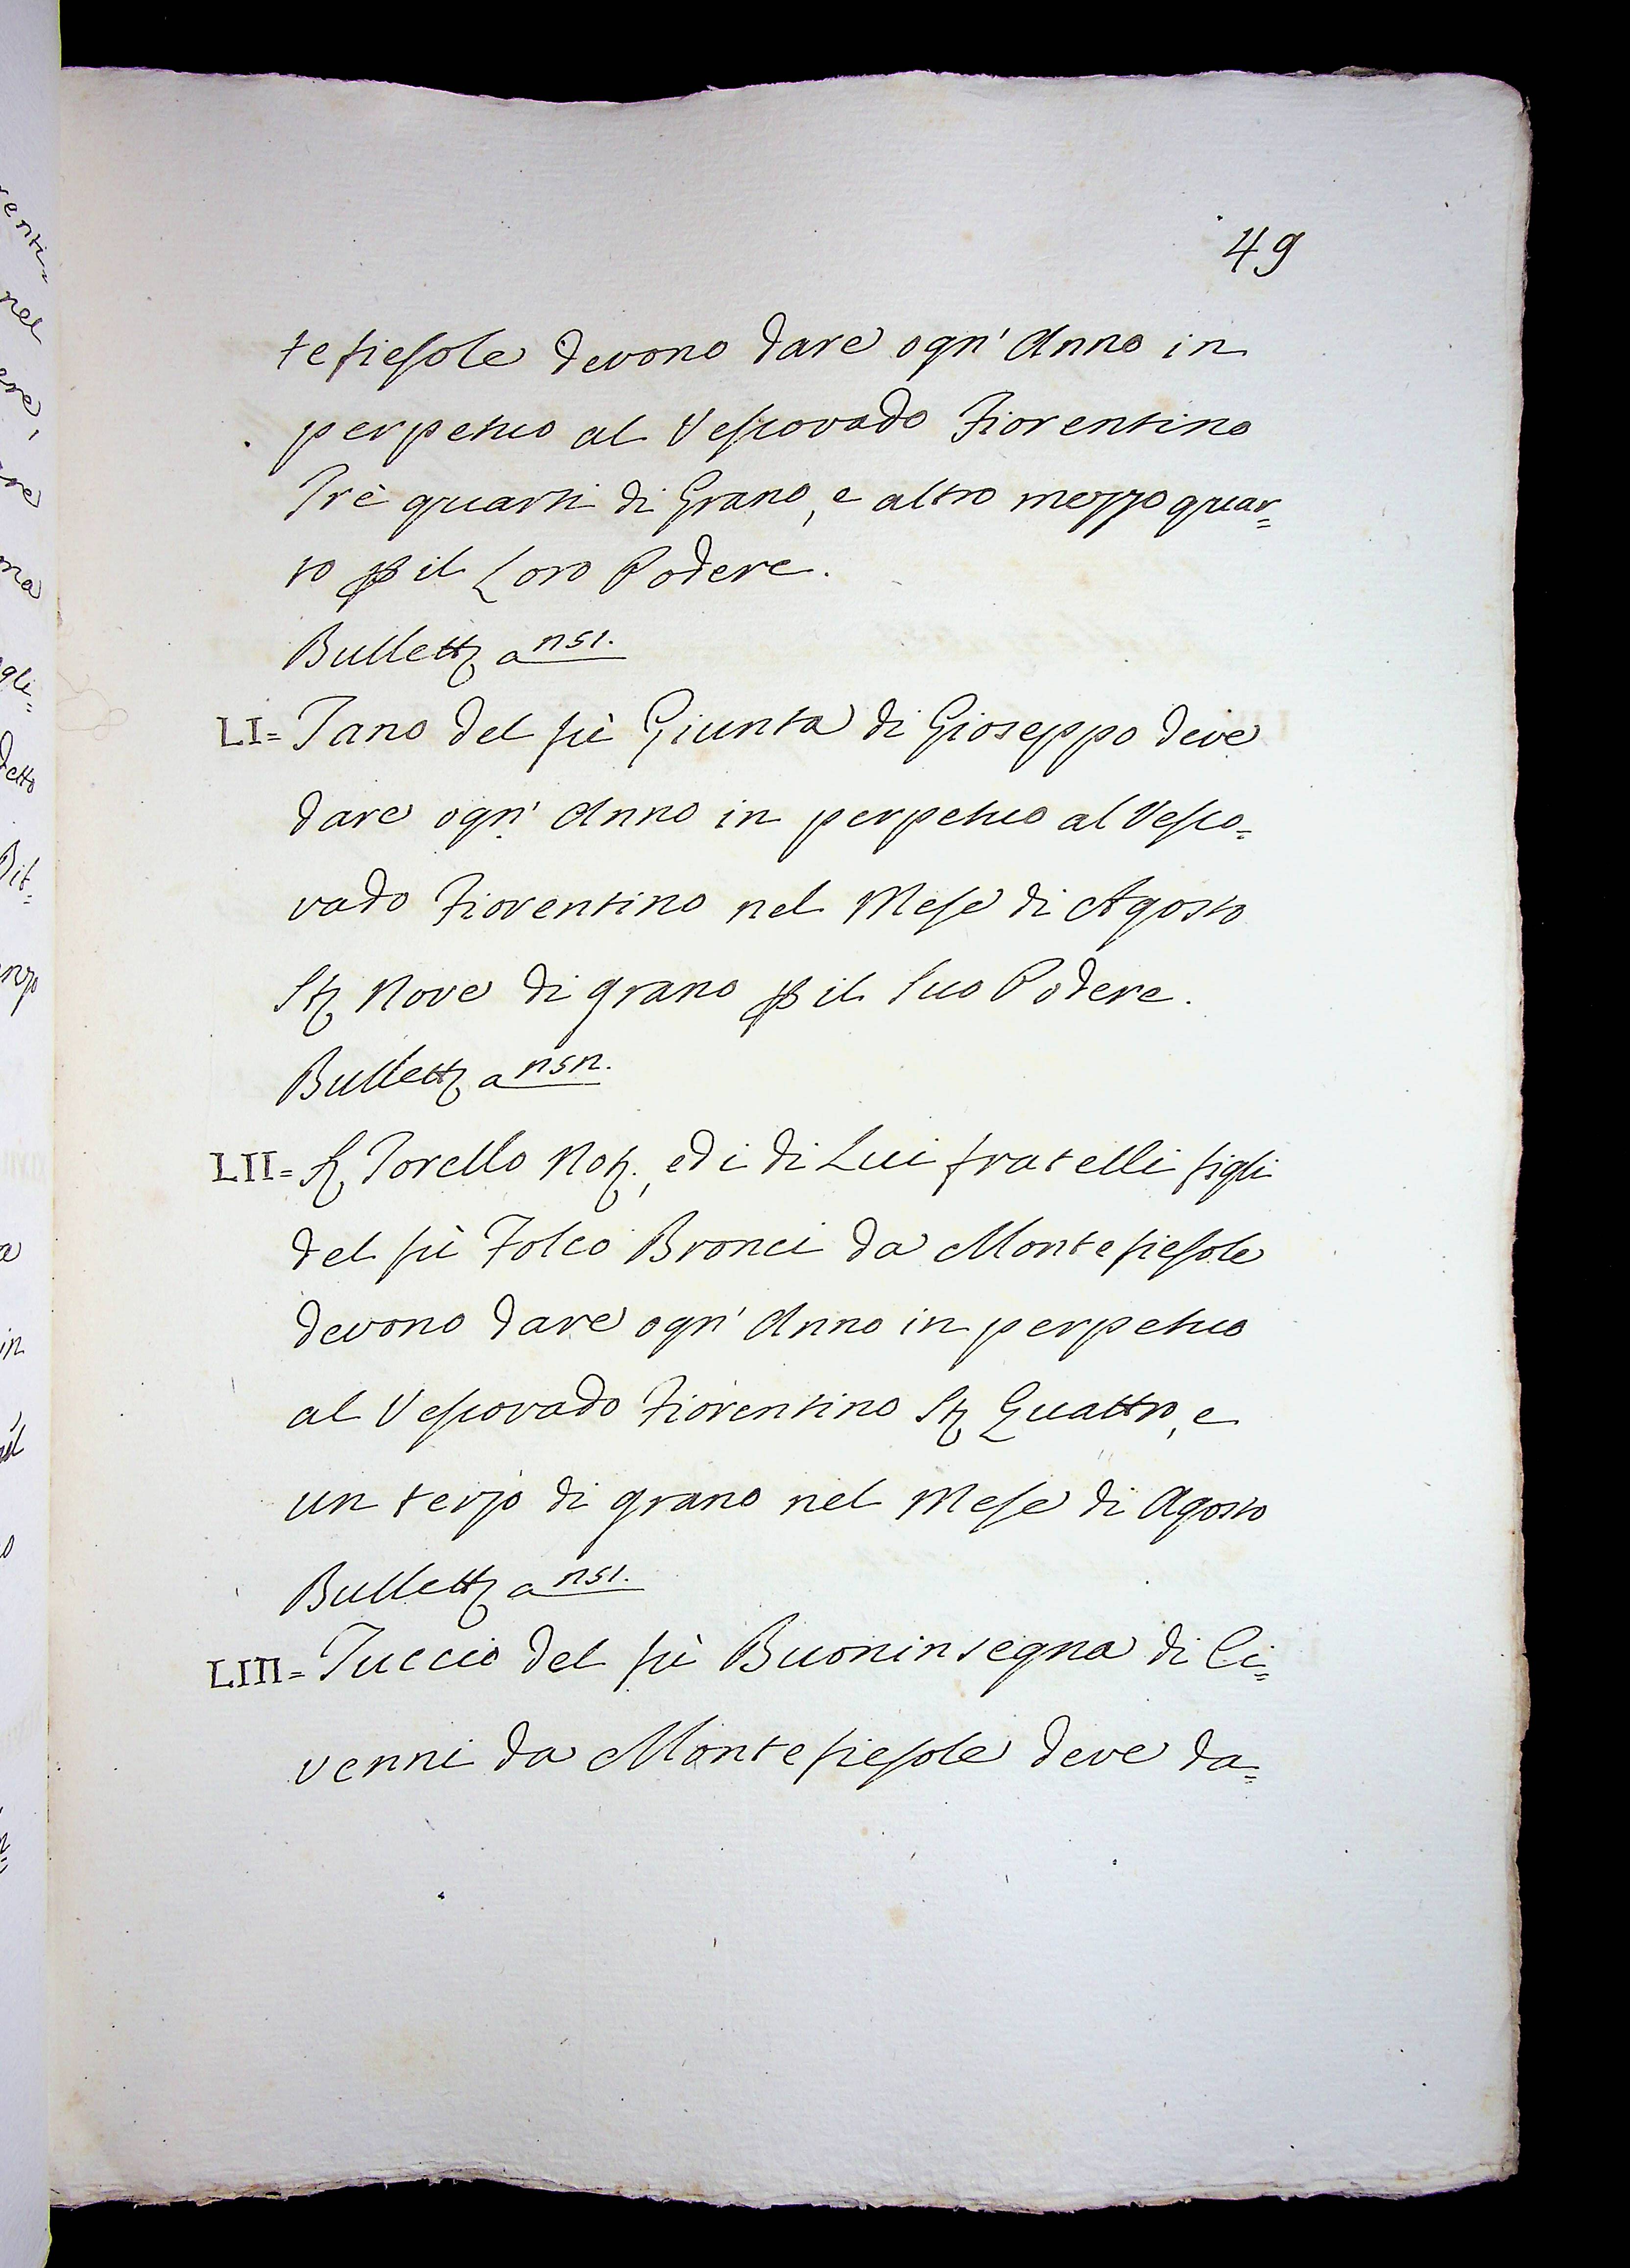 49
tefiesole devono dare ogn' Anno in
perpetuo al Vescovado Fiorentino
Trè quarti di Grano, e altro mezzo quar=
to p il Loro Podere.
Bullett a n51.
LI= Tano del fù Giunta di Gioseppo deve
dare ogn' Anno in perpetuo al Vesco=
vado Fiorentino nel Mese di Agosto
St Nove di grano p il Suo Podere.
Bullett a n5n.
LII= S Torello Not., ed i di Lui fratelli figli
del fù Folco Bronci da Montefiesole
devono dare ogn' Anno in perpetuo
al Vescovado Fiorentino St Quattro, e
un terzo di grano nel Mese di Agosto
Bullett a n51.
LIII= Tuccio del fù Buoninsegna di Ci=
venni da Montefiesole deve da=